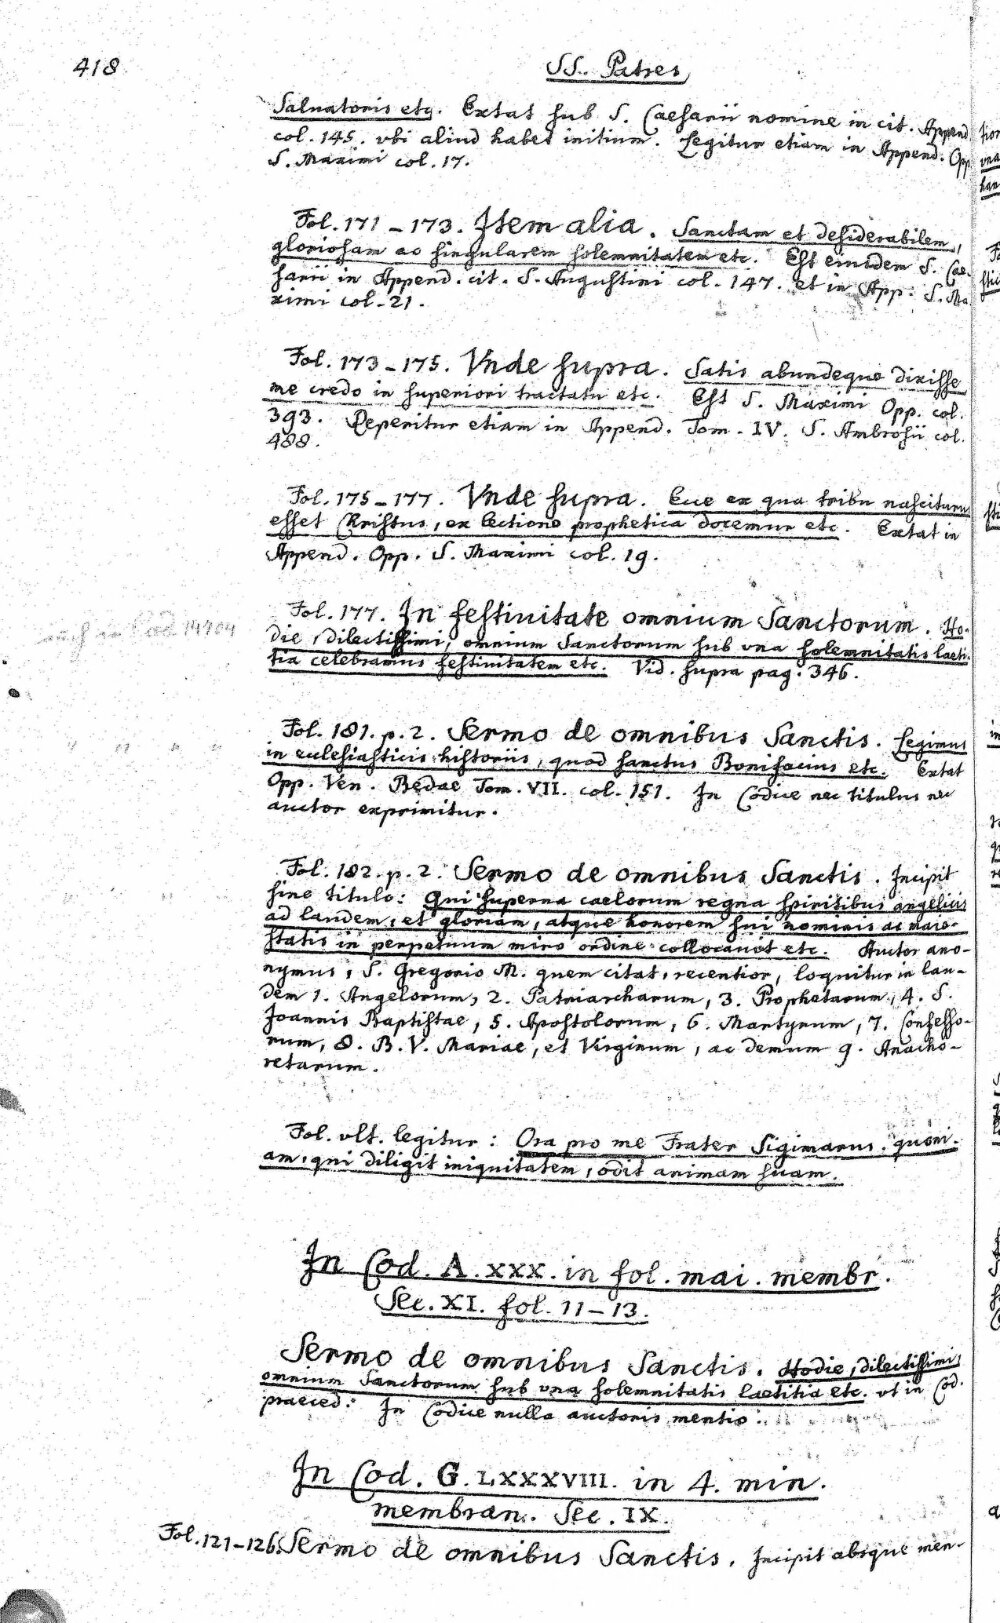 418
SS. Patres
Salvatoris etc. Extat sub S. Caesarii nomine in cit. Append.
col. 145. vbi aliud habet initium. Legitur etiam in Append. Opp.
S. Maximi col. 17.
Fol. 171 – 173. Item alia. Sanctam et desiderabilem,
gloriosam ac singularem solemnitatem etc. Est eiusdem S. Cae-
sarii in Append. cit. S. Augustini col. 147. et in App. S. Ma
ximi col. 21.
Fol. 173 – 175. Vnde supra. Satis abundeque dixisse
me credo in superiori tractatu etc. Est S. Maximi Opp. col.
393. Reperitur etiam in Append. Tom. IV. S. Ambrosii col.
488.
Fol. 175 – 177. Vnde supra. Ecce ex qua tribu nasciturus
esset Christus, ex lectione prophetica docemur etc. Extat in
Append. Opp. S. Maximi col. 19.
auch in Cod. 14704
Fol. 177. In festiuitate omnium Sanctorum. Ho-
die, dilectissimi, omnium Sanctorum sub vna solemnitatis laeti-
tia celebramus festiuitatem etc. Vid. supra pag. 346.
Fol. 181. p. 2. Sermo de omnibus Sanctis. Legimus
in ecclesiasticis historiis, quod sanctus Bonifacius etc. Extat
Opp. Ven. Bedae Tom. VII. col. 151. In Codice nec titulus nec
auctor exprimitur.
Fol. 182. p. 2. Sermo de omnibus Sanctis. Incipit
sine titulo: Qui superna caelorum regna spiritibus angelicis
ad laudem, et gloriam, atque honorem sui nominis ac maie-
statis in perpetuum miro ordine collocauit etc. Auctor ano-
nymus, S. Gregorio M. quem citat, recentior, loquitur in lau-
dem 1. Angelorum, 2. Patriarcharum, 3. Prophetarum, 4. S.
Joannis Baptistae, 5. Apostolorum, 6. Martyrum, 7. Confesso-
rum, 8. B. V. Mariae, et Virginum, ac demum 9. Anacho-
retarum.
Fol. vlt. legitur: Ora pro me Frater Sigimarus. quoni-
am, qui diligit iniquitatem, odit animam suam.
In Cod. A. XXX. in fol. mai. membr.
Sec. XI. fol. 11 – 13.
Sermo de omnibus Sanctis. Hodie, dilectissimi,
omnium Sanctorum sub vna solemnitatis laetitia etc. vt in Cod.
praeced. In Codice nulla auctoris mentio.
In Cod. G. LXXXVIII. in 4. min.
membran. Sec. IX.
Fol. 121–126. Sermo de omnibus Sanctis. Incipit absque men-